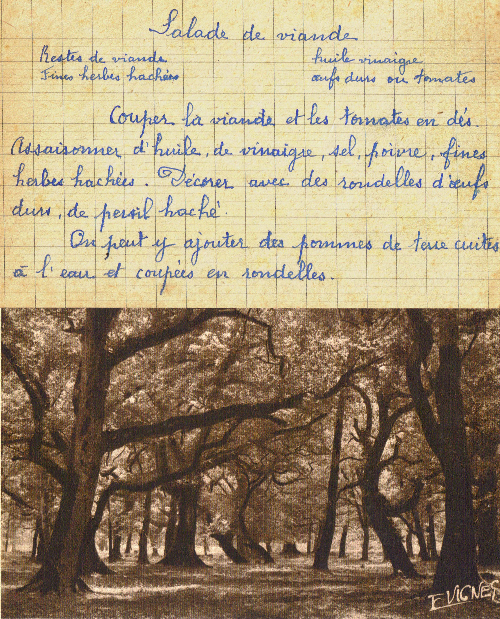 Salade de viande
Restes de viande huile vinaigre
Fines herbes hachées œufs durs ou tomates
Couper la viande et les tomates en dés.
Assaisonner d'huile, de vinaigre, sel, poivre, fines
herbes hachées. Décorer avec des rondelles d'œufs
durs, de persil haché.
On peut y ajouter des pommes de terre cuites
à l'eau et coupées en rondelles.
E.VIGNES